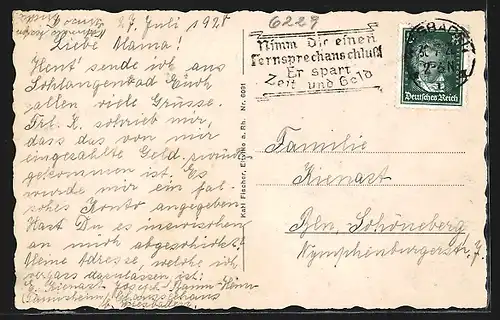 27. Juli 1928
6229
Liebe Mama!
Heut' sende ich aus
Schlangenbad Euch
allen viele Grüsse.
Frl. K. schrieb mir,
dass das von mir
eingezahlte Geld zurück
gekommen ist. Es
wurde mir ein fal-
sches Konto angegeben.
Hast Du es inzwischen
an mich abgeschickt?
Meine Adresse, welche ich
vergass dazulassen, ist:
E. Kienast Joseph Baum-Heim
Chausseehaus
b. Wiesbaden
Karl Fischer, Eltville a. Rh. Nr. 0691
Nimm Dir einen
Fernsprechanschluß
Er spart
Zeit und Geld
Deutsches Reich
Familie
Kienast
Bln. Schöneberg
Nymphenburgerstr. 7